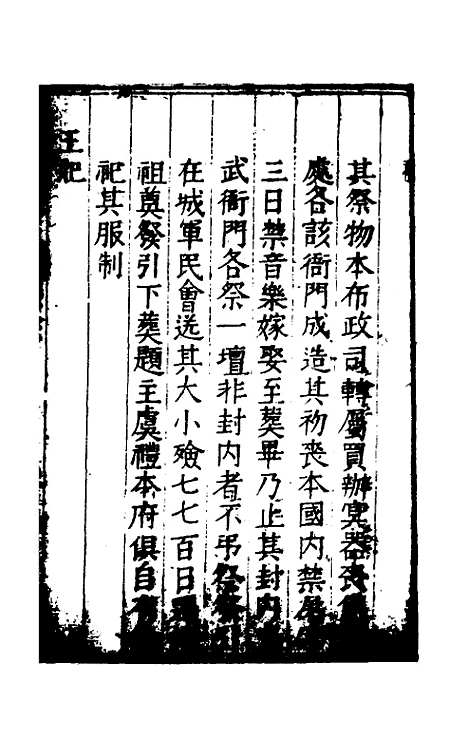 其祭物本布政司轉屬買辦冥器喪
處各該衙門成造其初喪本國內禁屠
三日禁音樂嫁娶至葬畢乃止其封內
武衙門各祭一壇非封內者不弔祭
在城軍民會送其大小殮七七百日
祖奠發引下葬題主虞禮本府俱自
祀其服制
王妃